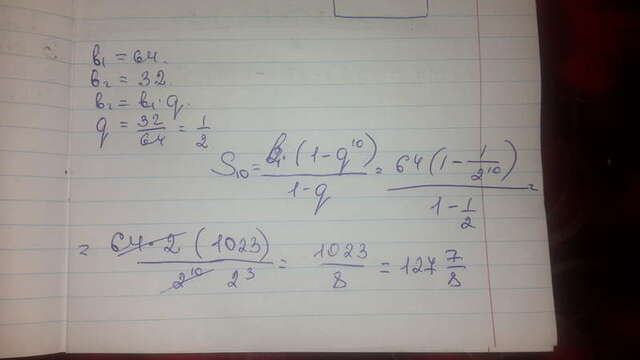 b₁ = 64.
b₂ = 32.
b₂ = b₁·q.
q = 32/64 = 1/2
S₁₀ = b₁·(1-q¹⁰)/1-q = 64(1-1/2¹⁰)/1-1/2 =
= 64·2(1023)/2¹⁰ 2³ = 1023/8 = 127 7/8